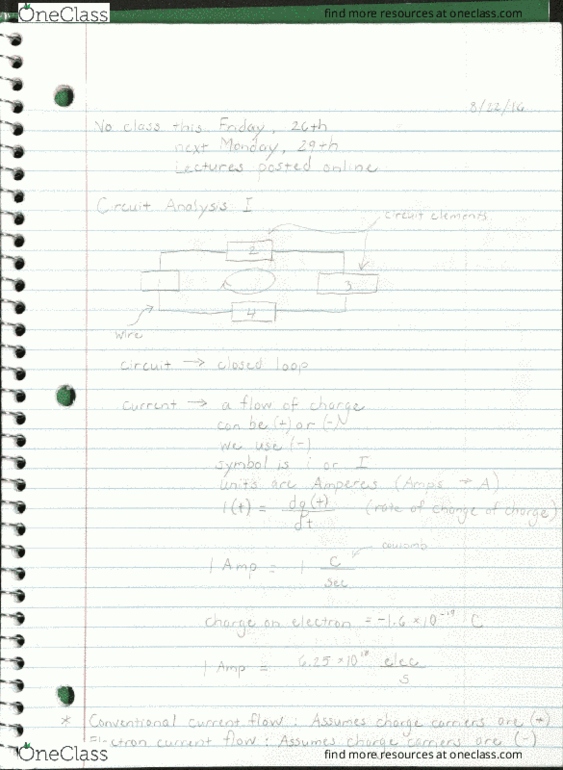 OneClass
find more resources at oneclass.com
8/22/16
No class this Friday, 26th
next Monday, 29th
Lectures posted online
Circuit Analysis I
circuit elements
2
3
4
wire
circuit → closed loop
current → a flow of charge
can be (+) or (-)
we use (-)
symbol is i or I
units are Amperes (Amps → A)
i(t) = dq(t)/dt (rate of change of charge)
coulomb
1 Amp = 1 C/sec
charge on electron = -1.6 × 10⁻¹⁹ C
1 Amp = 6.25 × 10¹⁸ elec/s
* Conventional current flow : Assumes charge carriers are (+)
Electron current flow : Assumes charge carriers are (-)
OneClass
find more resources at oneclass.com